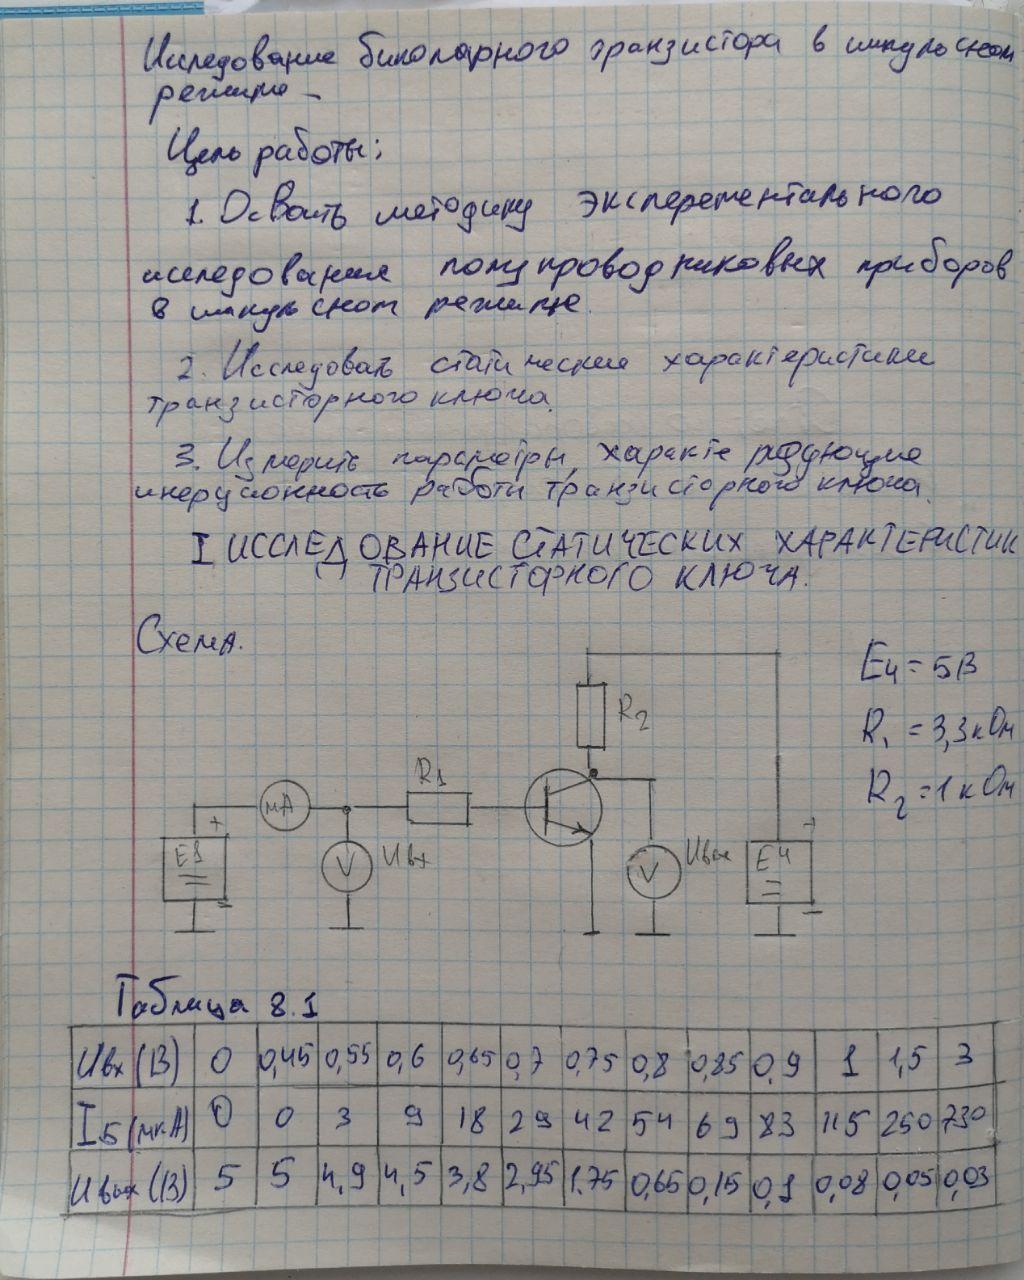 Иследование биполярного транзистора в импульсном
режиме
Цель работы:
1. Освоить методику эксперементального
исследования полупроводниковых приборов
в импульсном режиме.
2. Исследовать статические характеристики
транзисторного ключа.
3. Измерить параметры, характеризующие
инерционность работы транзисторного ключа.
I ИССЛЕДОВАНИЕ СТАТИЧЕСКИХ ХАРАКТЕРИСТИК
ТРАНЗИСТОРНОГО КЛЮЧА.
Схема.
E4 = 5В
R1 = 3,3 кОм
R2 = 1 кОм
R2
R1
мА
+
E1
-
V Uвх
V Uвых
+
E4
-
Таблица 8.1
Uвх (В) 0 0,45 0,55 0,6 0,65 0,7 0,75 0,8 0,85 0,9 1 1,5 3
IБ (мкА) 0 0 3 9 18 29 42 54 69 83 115 260 730
Uвых (В) 5 5 4,9 4,5 3,8 2,95 1,75 0,65 0,15 0,1 0,08 0,05 0,03